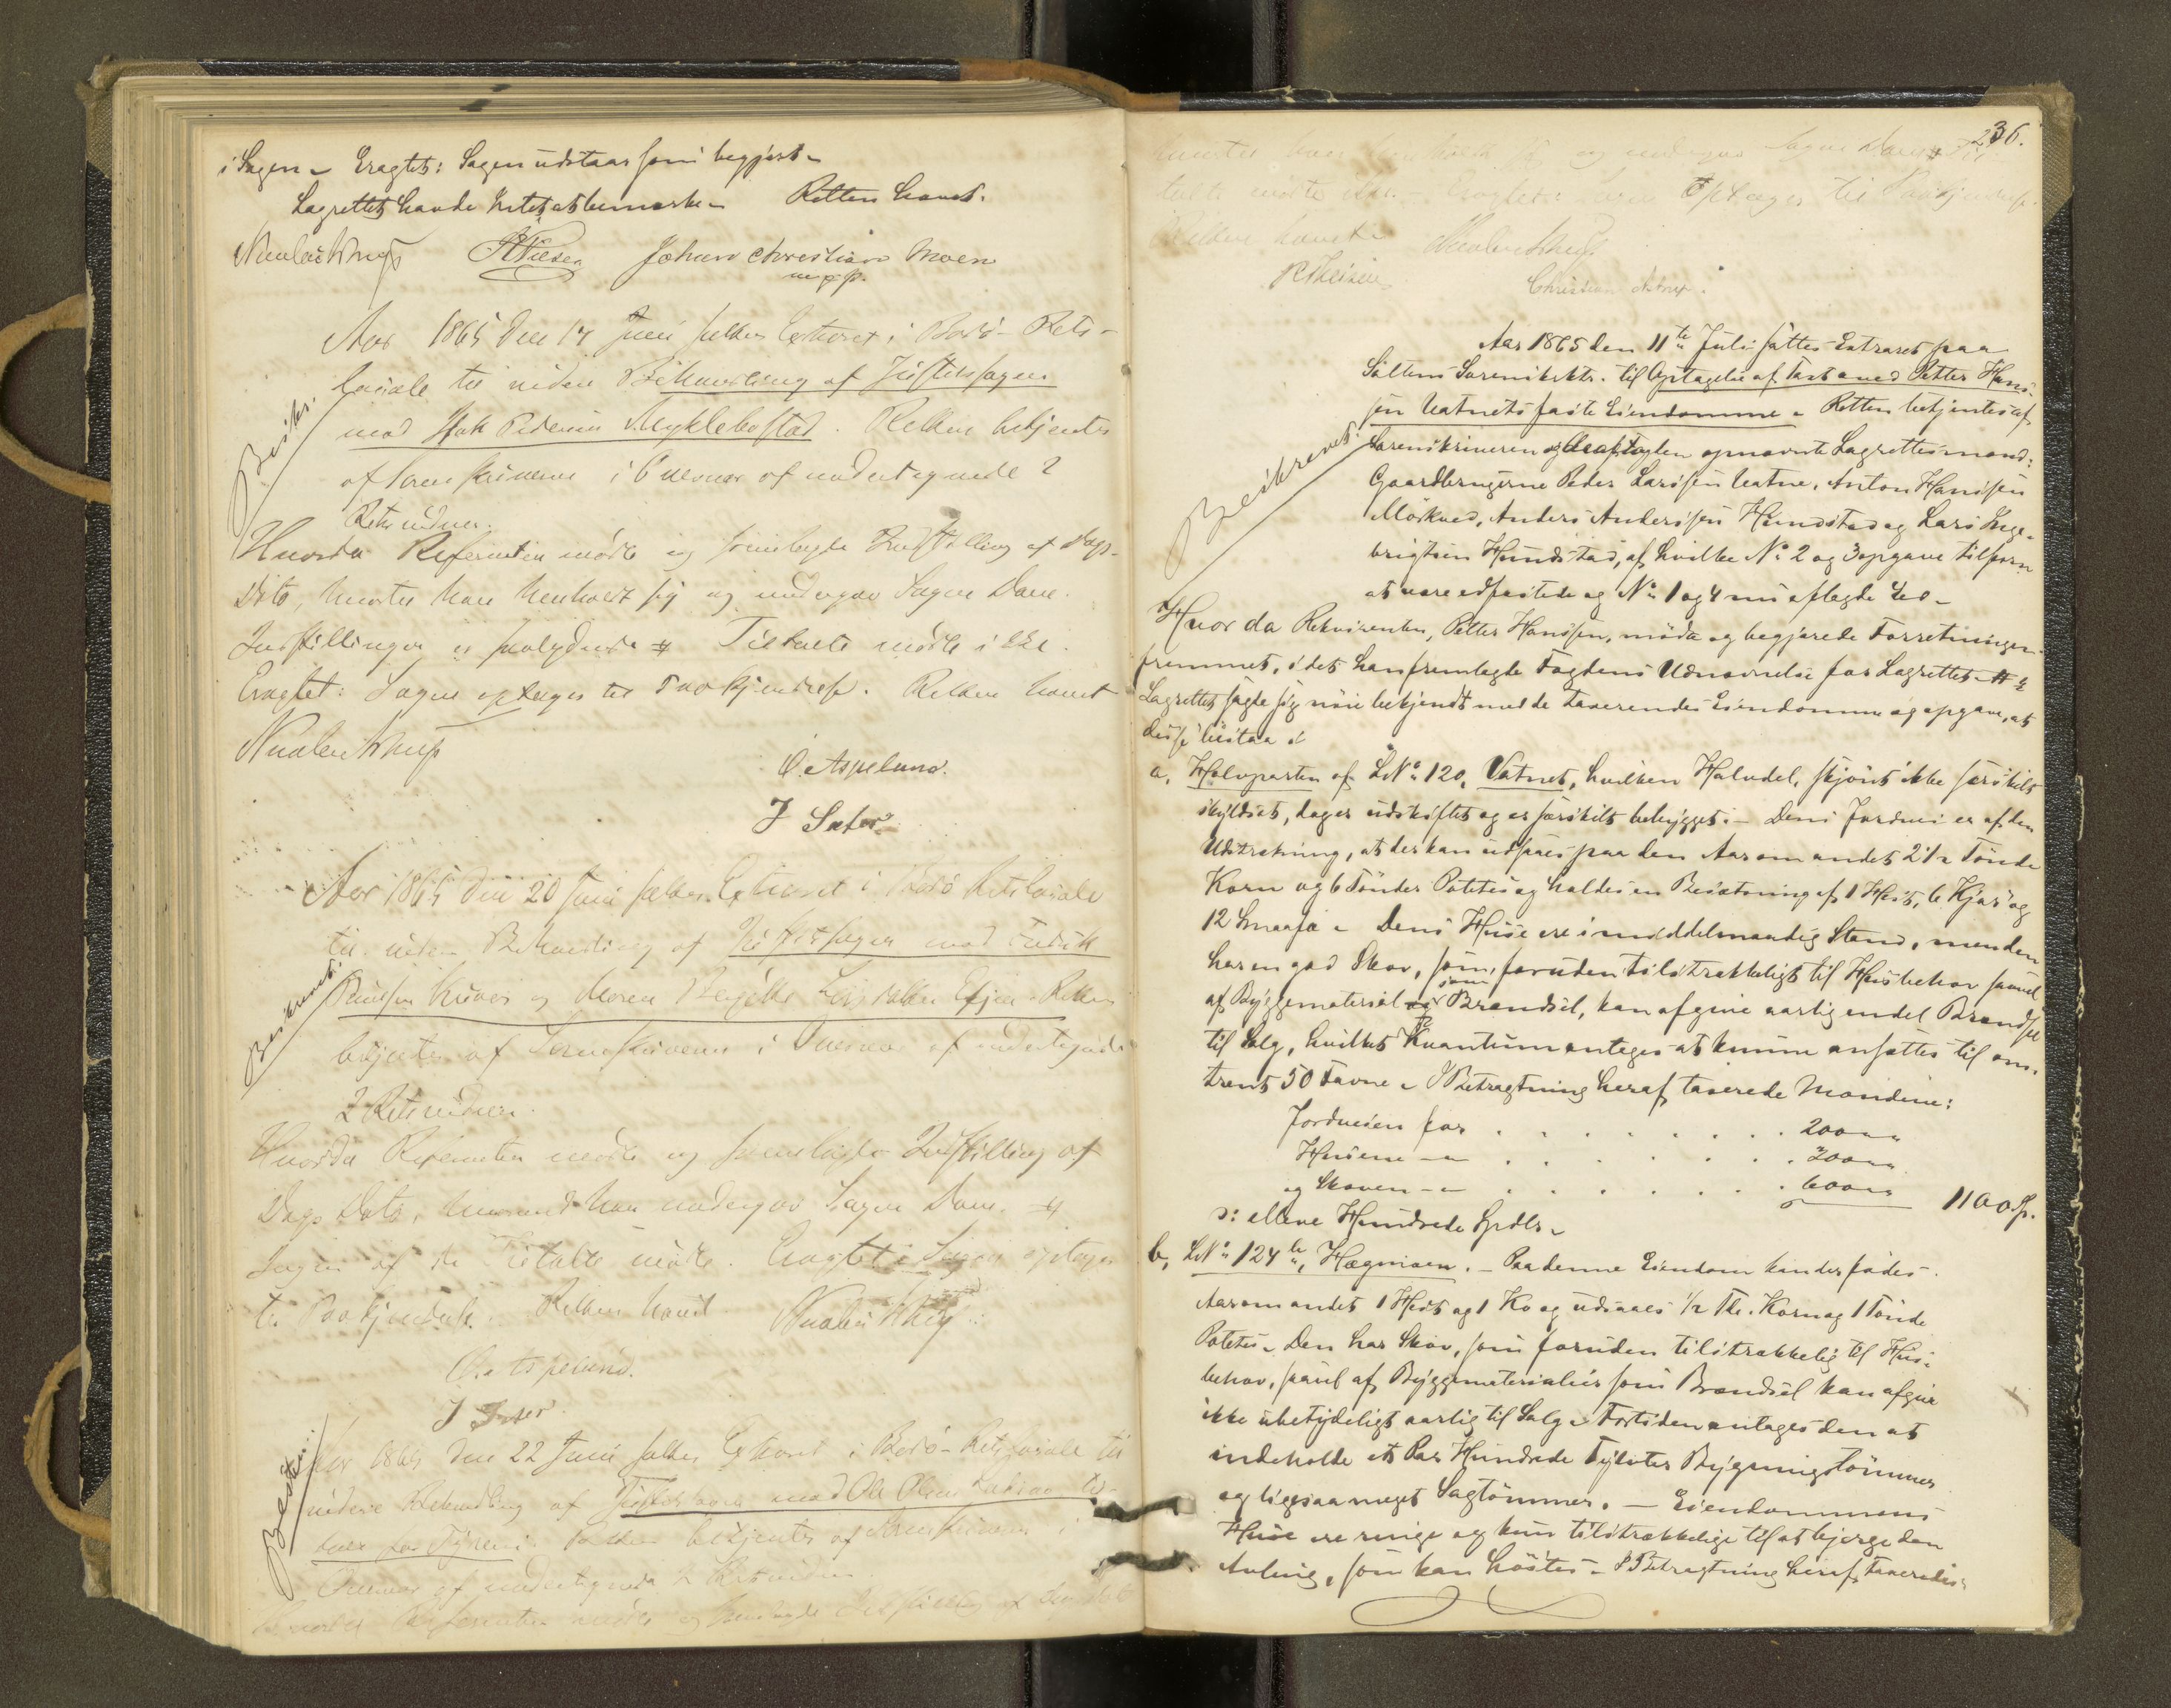 i Sagen – Eragtet: Sagen udstaar som begjært –
Lagrettet havde Intet at bemærke – Retten hævet.
Johan Christian Moen
m. p. P.
Aar 1865 den 17 Juni holdtes Extraret i Bodø Rets-
lokale til videre Behandling af Justitssagen
mod Isak Pedersen Myklebostad. Retten betjentes
af Sorenskriveren i Overvær af undertegnede 2
Retsvidner.
Beskr.
Hvorda Referenten mødte og fremlagde Indstilling af Dags
Dato, hvortil han henholdt sig og undergav Sagen Dom.
Indstillingen er saalydende # Tiltalte mødte ikke.
Eragtet: Sagen optages til Paakjendelse. Retten hævet
O. Aspelund.
J Sæter
Aar 1865 den 20 Juni holdtes Extraret i Bodø Retslokale
til videre Behandling af Justitssagen mod Fredrik
og Maren Retten
Beskrevet.
betjentes af Sorenskriveren i Overvær af undertegnede
2 Retsvidner.
Hvorda Referenten mødte og fremlagde Indstilling af
Dags Dato, hvorved han undergav Sagen Dom. #
Ingen af de Tiltalte mødte. Eragtet: Sagen optages
til Paakjendelse. Retten hævet
O. Aspelund.
J Sæter
Beskr.
Aar 1865 den 22 Juni holdtes Extraret i Bodø Retslokale til
videre Behandling af Justitssagen mod Ole Olsen til-
talt for Tyveri. Retten betjentes af Sorenskriveren i
Overvær af undertegnede 2 Retsvidner.
Hvorda Referenten mødte og fremlagde Indstilling af Dags Dato
236.
hvortil han henholdt sig og undergav Sagen Dom # Til-
talte mødte ikke. Eragtet: Sagen Optages til Paakjendelse.
Retten hævet
Christian
Aar 1865 den 11te Juli sattes Extraret paa
Saltens Sorenskrktr. til Optagelse af Taxt over Petter Hans-
sen Vatnets faste Eiendomme – Retten betjentes af
Sorenskriveren og de af Fogden opnævnte Lagrettesmænd:
Gaardbrugerne Peder Larssen Vatne, Anton Hanssen
Mørkved, Anders Anderssen Hundstad og Lars Inge-
brigtsen Hundstad, af hvilke No 2 og 3 opgave tilforn
at være edfæstede og No 1 og 4 nu aflagde Ed –
Beskrevet.
Hvor da Rekvirenten, Petter Hanssen, mødte og begjærede Forretningen
fremmet, idet han fremlagde Fogdens Udnævnelse for Lagrettet #
Lagrettet sagde sig nøie bekjendt med de taxerendes Eiendomme og opgave, at
disse bestaa i
a, Halvparten af LNo 120, Vatnet, hvilken Halvdel, skjønt ikke særskilt
skyldsat, dog er udskiftet og er særskilt bebygget. – Dens Jordvei er af den
Udstrækning, at der kan udsaaes paa den Aar om andet 2 1/2 Tønde
Korn og 6 Tønder Poteter og holdes en Besætning af 1 Hest, 6 Kjør og
12 Smaafæ – Dens Huse ere i middelmaadig Stand, men den
har en god Skov, som, foruden tilstrækkeligt til Husbehov saavel
af Byggemateriel som Brændsel, kan afgive aarlig endel Brændsel
til Salg, hvilket Kvantum antages at kunne ansættes til om-
trent 50 Favne – I Betragtning heraf taxerede Mændene:
Jordveien for . . . . . . . . 200 "
Husene – " . . . . . . . 300 "
og Skoven – " . . . . . . . 600 " 1100 Sp.
ɔ: elleve Hundrede Spdlr –
b, LNo 124 b, Hægmoen. – Paa denne Eiendom kan der fødes
Aar om andet 1 Hest og 1 Ko og udsaaes 1/2 Tde. Korn og 1 Tønde
Poteter. Den har Skov, som foruden tilstrækkelig til Hus-
behov, saavel af Byggematerialier som Brændsel kan afgive
ikke ubetydeligt aarlig til Salg – Fortiden antages den at
indeholde et Par Hundrede Tylvter Bygningstømmer
og ligesaa meget Sagtømmer. – Eiendommens
Huse ere ringe og kun tilstrækkelige til at bjerge den
Avling, som kan høstes – I Betragtning heraf taxeredes